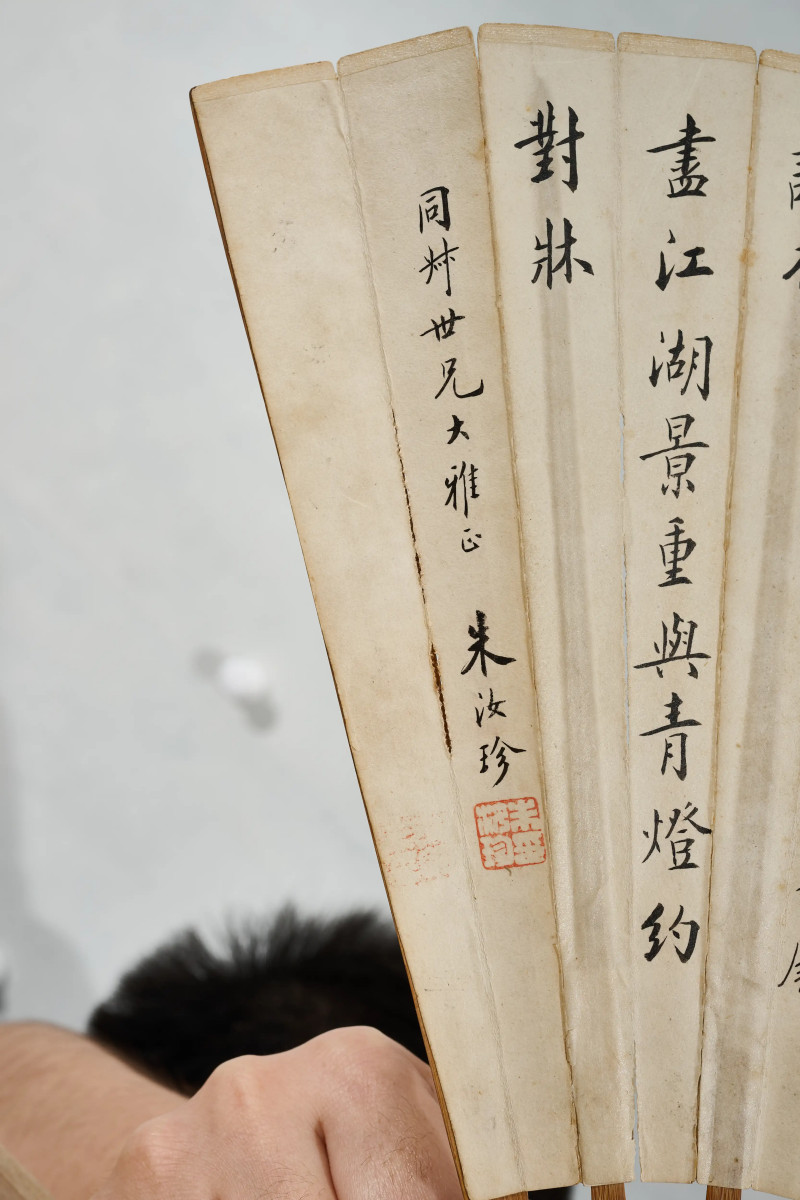 盡江湖景重與青燈約
對牀
同艸世兄大雅正
朱汝珍